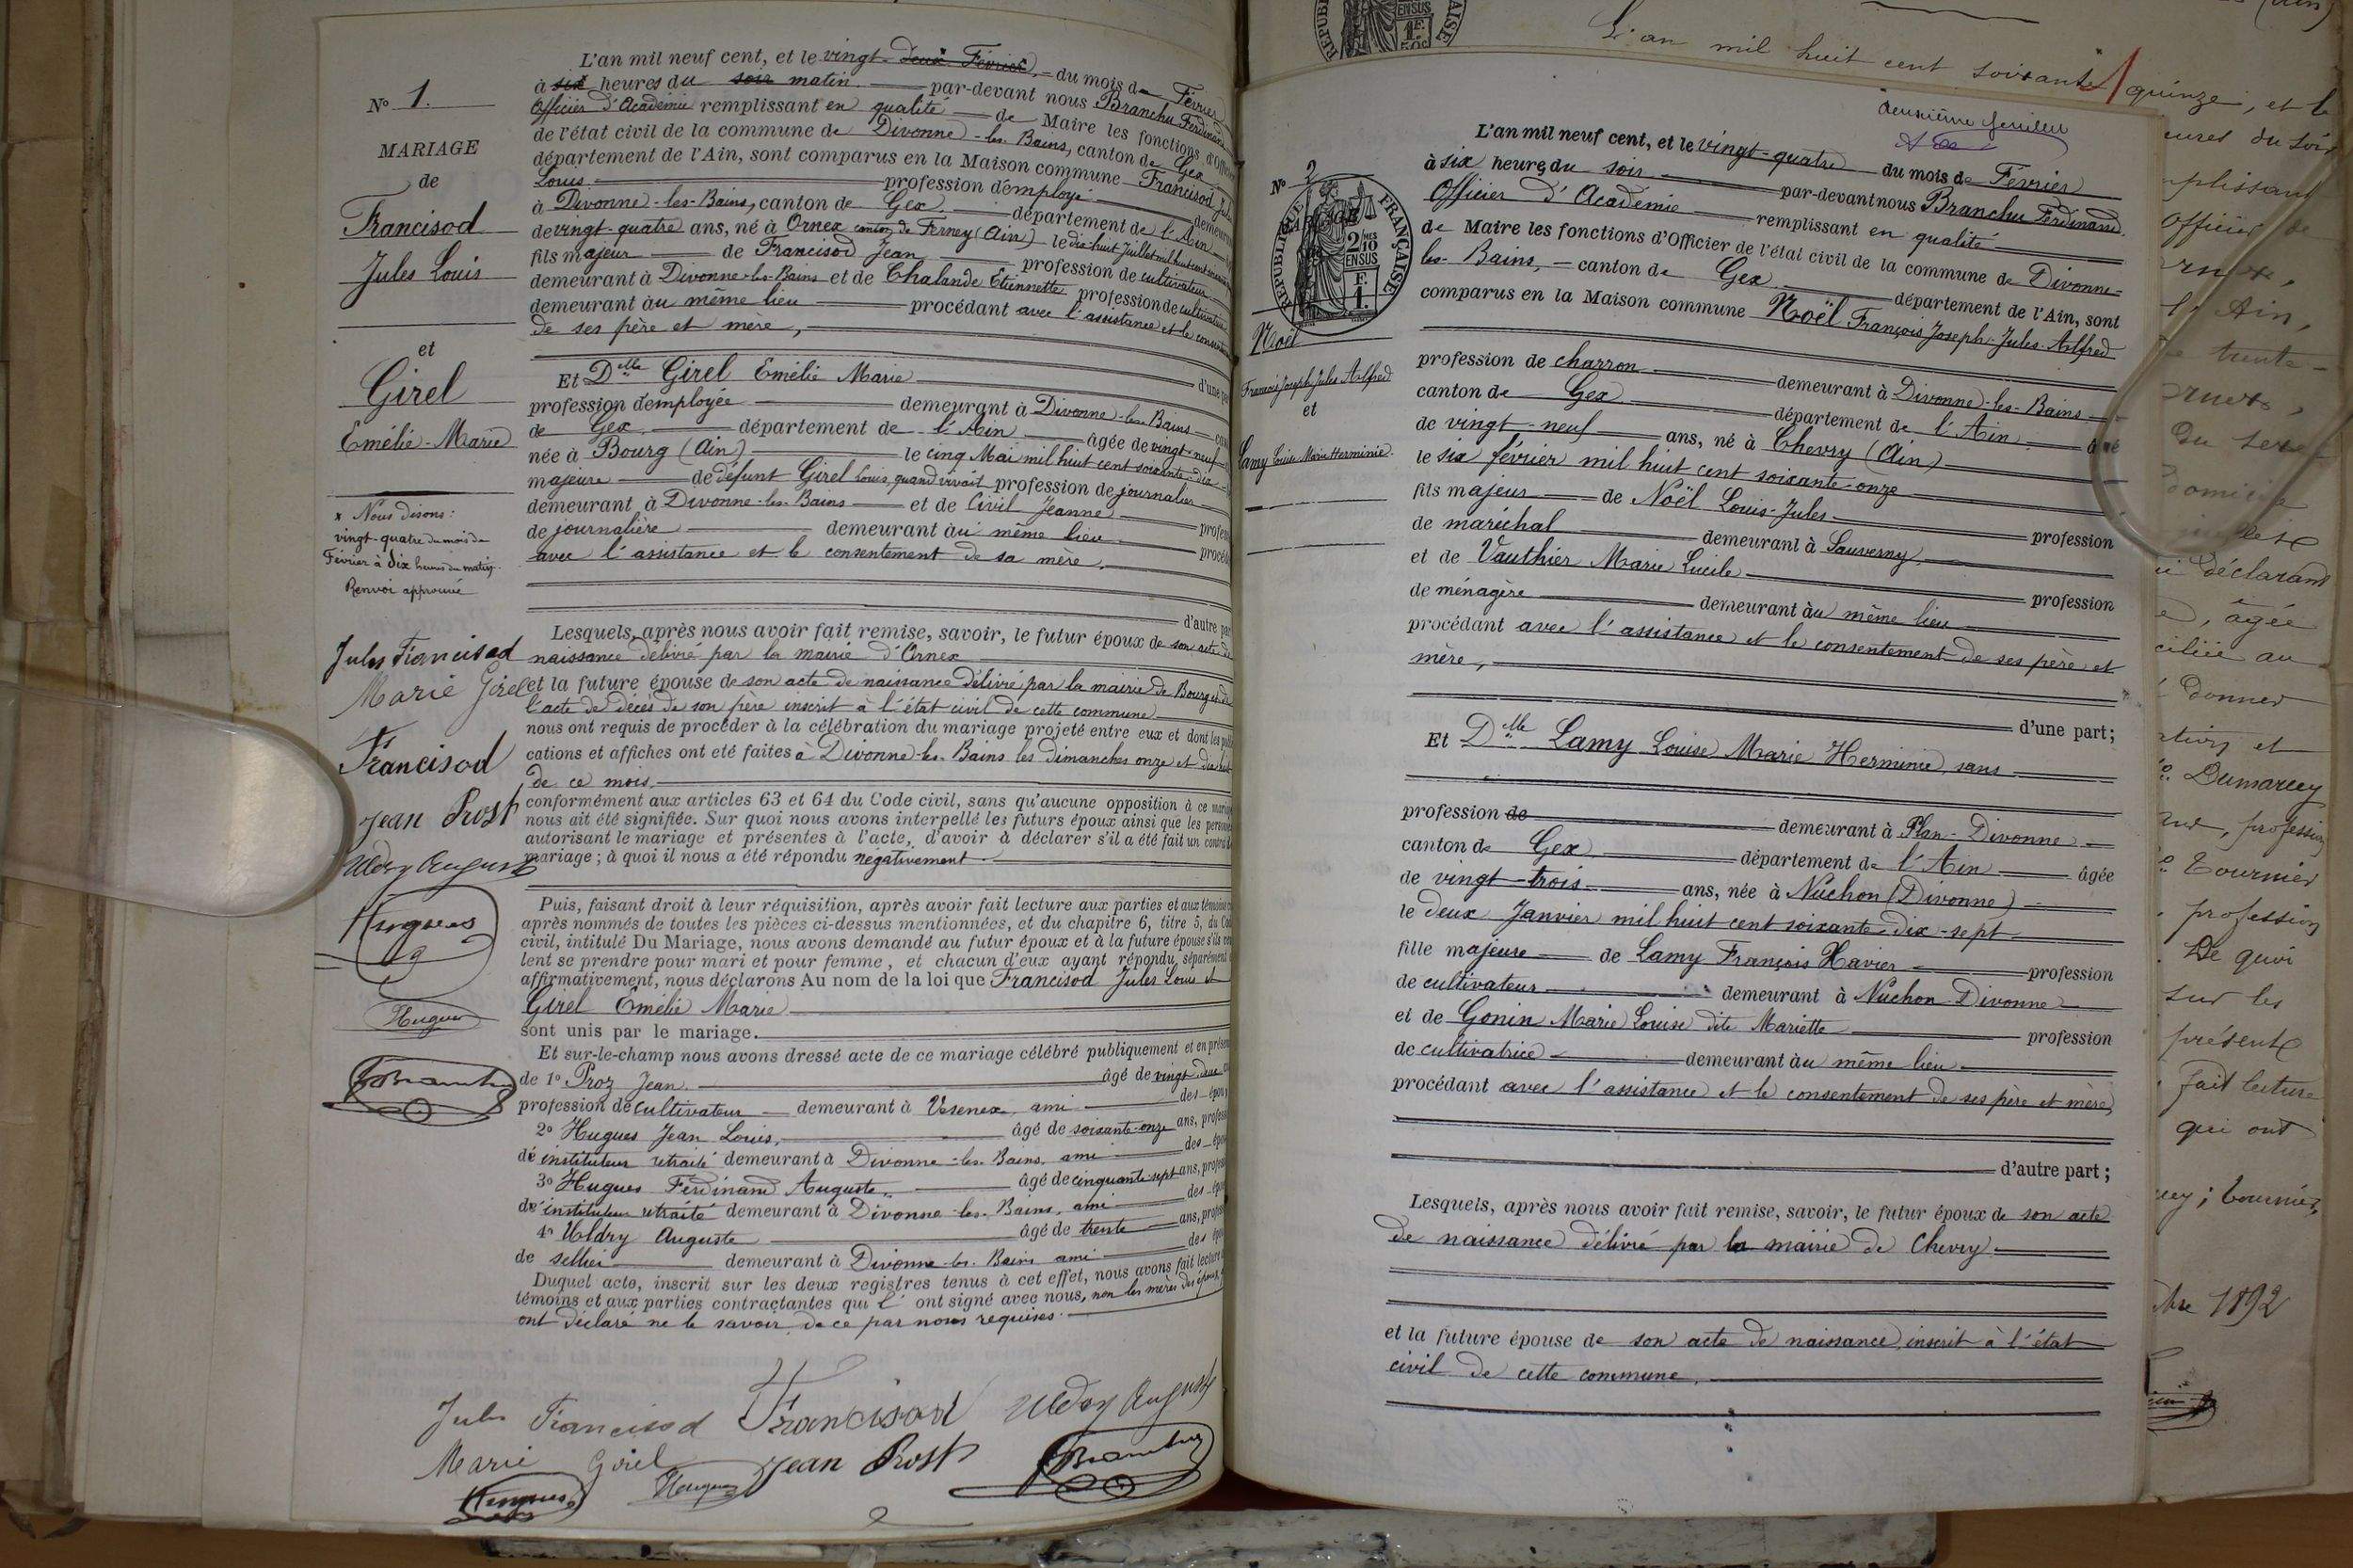 N° 1.
MARIAGE
de
Francisod
Jules Louis
et
Girel
Emélie-Marie
x Nous disons:
vingt-quatre du mois de
Février à dix heures du matin.
Renvoi approuvé
Jules Francisod
Marie Girel
Francisod
Jean Prost
Uldry Auguste
Hugues
Hugues
L'an mil neuf cent, et le vingt-deux Février, du mois de Février
à six heures du soir matin. par-devant nous Branchu Ferdinand
Officier d'Académie remplissant en qualité de Maire les fonctions d'Officier
de l'état civil de la commune de Divonne-les-Bains, canton de Gex
département de l'Ain, sont comparus en la Maison commune Francisod Jules
Louis profession d'employé demeurant
à Divonne-les-Bains, canton de Gex. département de l'Ain
de vingt-quatre ans, né à Ornex canton de Ferney (Ain) le dix-huit Juillet mil huit cent
fils majeur de Francisod Jean profession de cultivateur
demeurant à Divonne-les-Bains et de Chalande Etiennette profession de cultivatrice
demeurant au même lieu procédant avec l'assistance et le
de ses père et mère,
Et Dlle Girel Emélie Marie d'une
profession d'employée demeurant à Divonne-les-Bains
de Gex département de l'Ain âgée de vingt-neuf
née à Bourg (Ain) le cinq Mai mil huit cent soixante-dix
majeure de défunt Girel Louis, quand vivait profession de journalier
demeurant à Divonne-les-Bains et de Civil Jeanne
de journalière demeurant au même lieu
avec l'assistance et le consentement de sa mère.
d'autre
Lesquels, après nous avoir fait remise, savoir, le futur époux de son acte de
naissance délivré par la mairie d'Ornex
et la future épouse de son acte de naissance délivré par la mairie de Bourg et de
l'acte de décès de son père inscrit à l'état civil de cette commune
nous ont requis de procéder à la célébration du mariage projeté entre eux et dont les
cations et affiches ont été faites à Divonne-les-Bains les dimanches onze et dix-huit
de ce mois.
conformément aux articles 63 et 64 du Code civil, sans qu'aucune opposition à ce
nous ait été signifiée. Sur quoi nous avons interpellé les futurs époux ainsi que les
autorisant le mariage et présentes à l'acte, d'avoir à déclarer s'il a été fait un
mariage ; à quoi il nous a été répondu négativement.
Puis, faisant droit à leur réquisition, après avoir fait lecture aux parties et aux témoins
après nommés de toutes les pièces ci-dessus mentionnées, et du chapitre 6, titre 5, du
civil, intitulé Du Mariage, nous avons demandé au futur époux et à la future épouse s'ils
lent se prendre pour mari et pour femme, et chacun d'eux ayant répondu, séparément
affirmativement, nous déclarons Au nom de la loi que Francisod Jules Louis et
Girel Emélie Marie
sont unis par le mariage.
Et sur-le-champ nous avons dressé acte de ce mariage célébré publiquement et en
de 1° Proz Jean. âgé de vingt-deux
profession de cultivateur demeurant à Vésenex, ami des
2° Hugues Jean Louis, âgé de soixante-onze ans,
de instituteur retraité demeurant à Divonne-les-Bains, ami des
3° Hugues Ferdinand Auguste, âgé de cinquante-sept ans,
de instituteur retraité demeurant à Divonne-les-Bains, ami des
4° Uldry Auguste âgé de trente ans,
de sellier demeurant à Divonne-les-Bains ami des
Duquel acte, inscrit sur les deux registres tenus à cet effet, nous avons fait lecture
témoins et aux parties contractantes qui l' ont signé avec nous, non les mères des époux
ont déclaré ne le savoir de ce par nous requises.
Jules Francisod Francisod Uldry Auguste
Marie Girel Jean Prost Branchu
Hugues Hugues
deuxième feuillet
N° 2
RÉPUBLIQUE FRANÇAISE
2/10 EN SUS
1 F.
Noël
François Joseph Jules Alfred
et
Lamy Louise Marie Herminie.
L'an mil neuf cent, et le vingt-quatre du mois de Février
à six heures du soir par-devant nous Branchu Ferdinand
Officier d'Académie remplissant en qualité
de Maire les fonctions d'Officier de l'état civil de la commune de Divonne-
les-Bains, canton de Gex département de l'Ain, sont
comparus en la Maison commune Noël François Joseph-Jules-Alfred
profession de charron demeurant à Divonne-les-Bains
canton de Gex département de l'Ain âgé
de vingt-neuf ans, né à Chevry (Ain)
le six février mil huit cent soixante-onze
fils majeur de Noël Louis-Jules profession
de maréchal demeurant à Sauverny
et de Vauthier Marie Lucile profession
de ménagère demeurant au même lieu
procédant avec l'assistance et le consentement de ses père et
mère,
d'une part;
Et Dlle Lamy Louise Marie Herminie, sans
profession de demeurant à Plan-Divonne
canton de Gex département de l'Ain âgée
de vingt-trois ans, née à Nuchon (Divonne)
le deux Janvier mil huit cent soixante-dix-sept
fille majeure de Lamy François Xavier profession
de cultivateur demeurant à Nuchon-Divonne
et de Gonin Marie Louise dite Mariette profession
de cultivatrice demeurant au même lieu
procédant avec l'assistance et le consentement de ses père et mère,
d'autre part ;
Lesquels, après nous avoir fait remise, savoir, le futur époux de son acte
de naissance délivré par la mairie de Chevry
et la future épouse de son acte de naissance inscrit à l'état
civil de cette commune.
L'an mil huit cent soixante quinze, et le
du soir
Officier de
Ain,
trente
du sexe
domicile
déclarant
âgée
au
donner
et
Dumarcey
profession
2° Tournier
profession
De quoi
sur les
présente
fait lecture
qui ont
Tournier,
1892